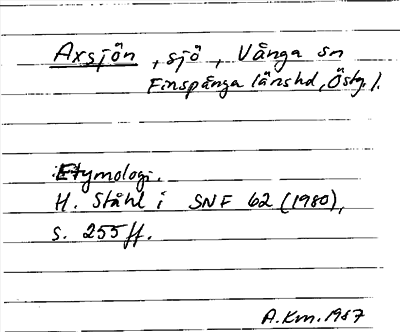 Axsjön, sjö, Vånga sn
Finspånga länshd, Östg.l.
Etymologi.
H. Ståhl i SNF 62 (1980),
s. 255 ff.
A.Km. 1987